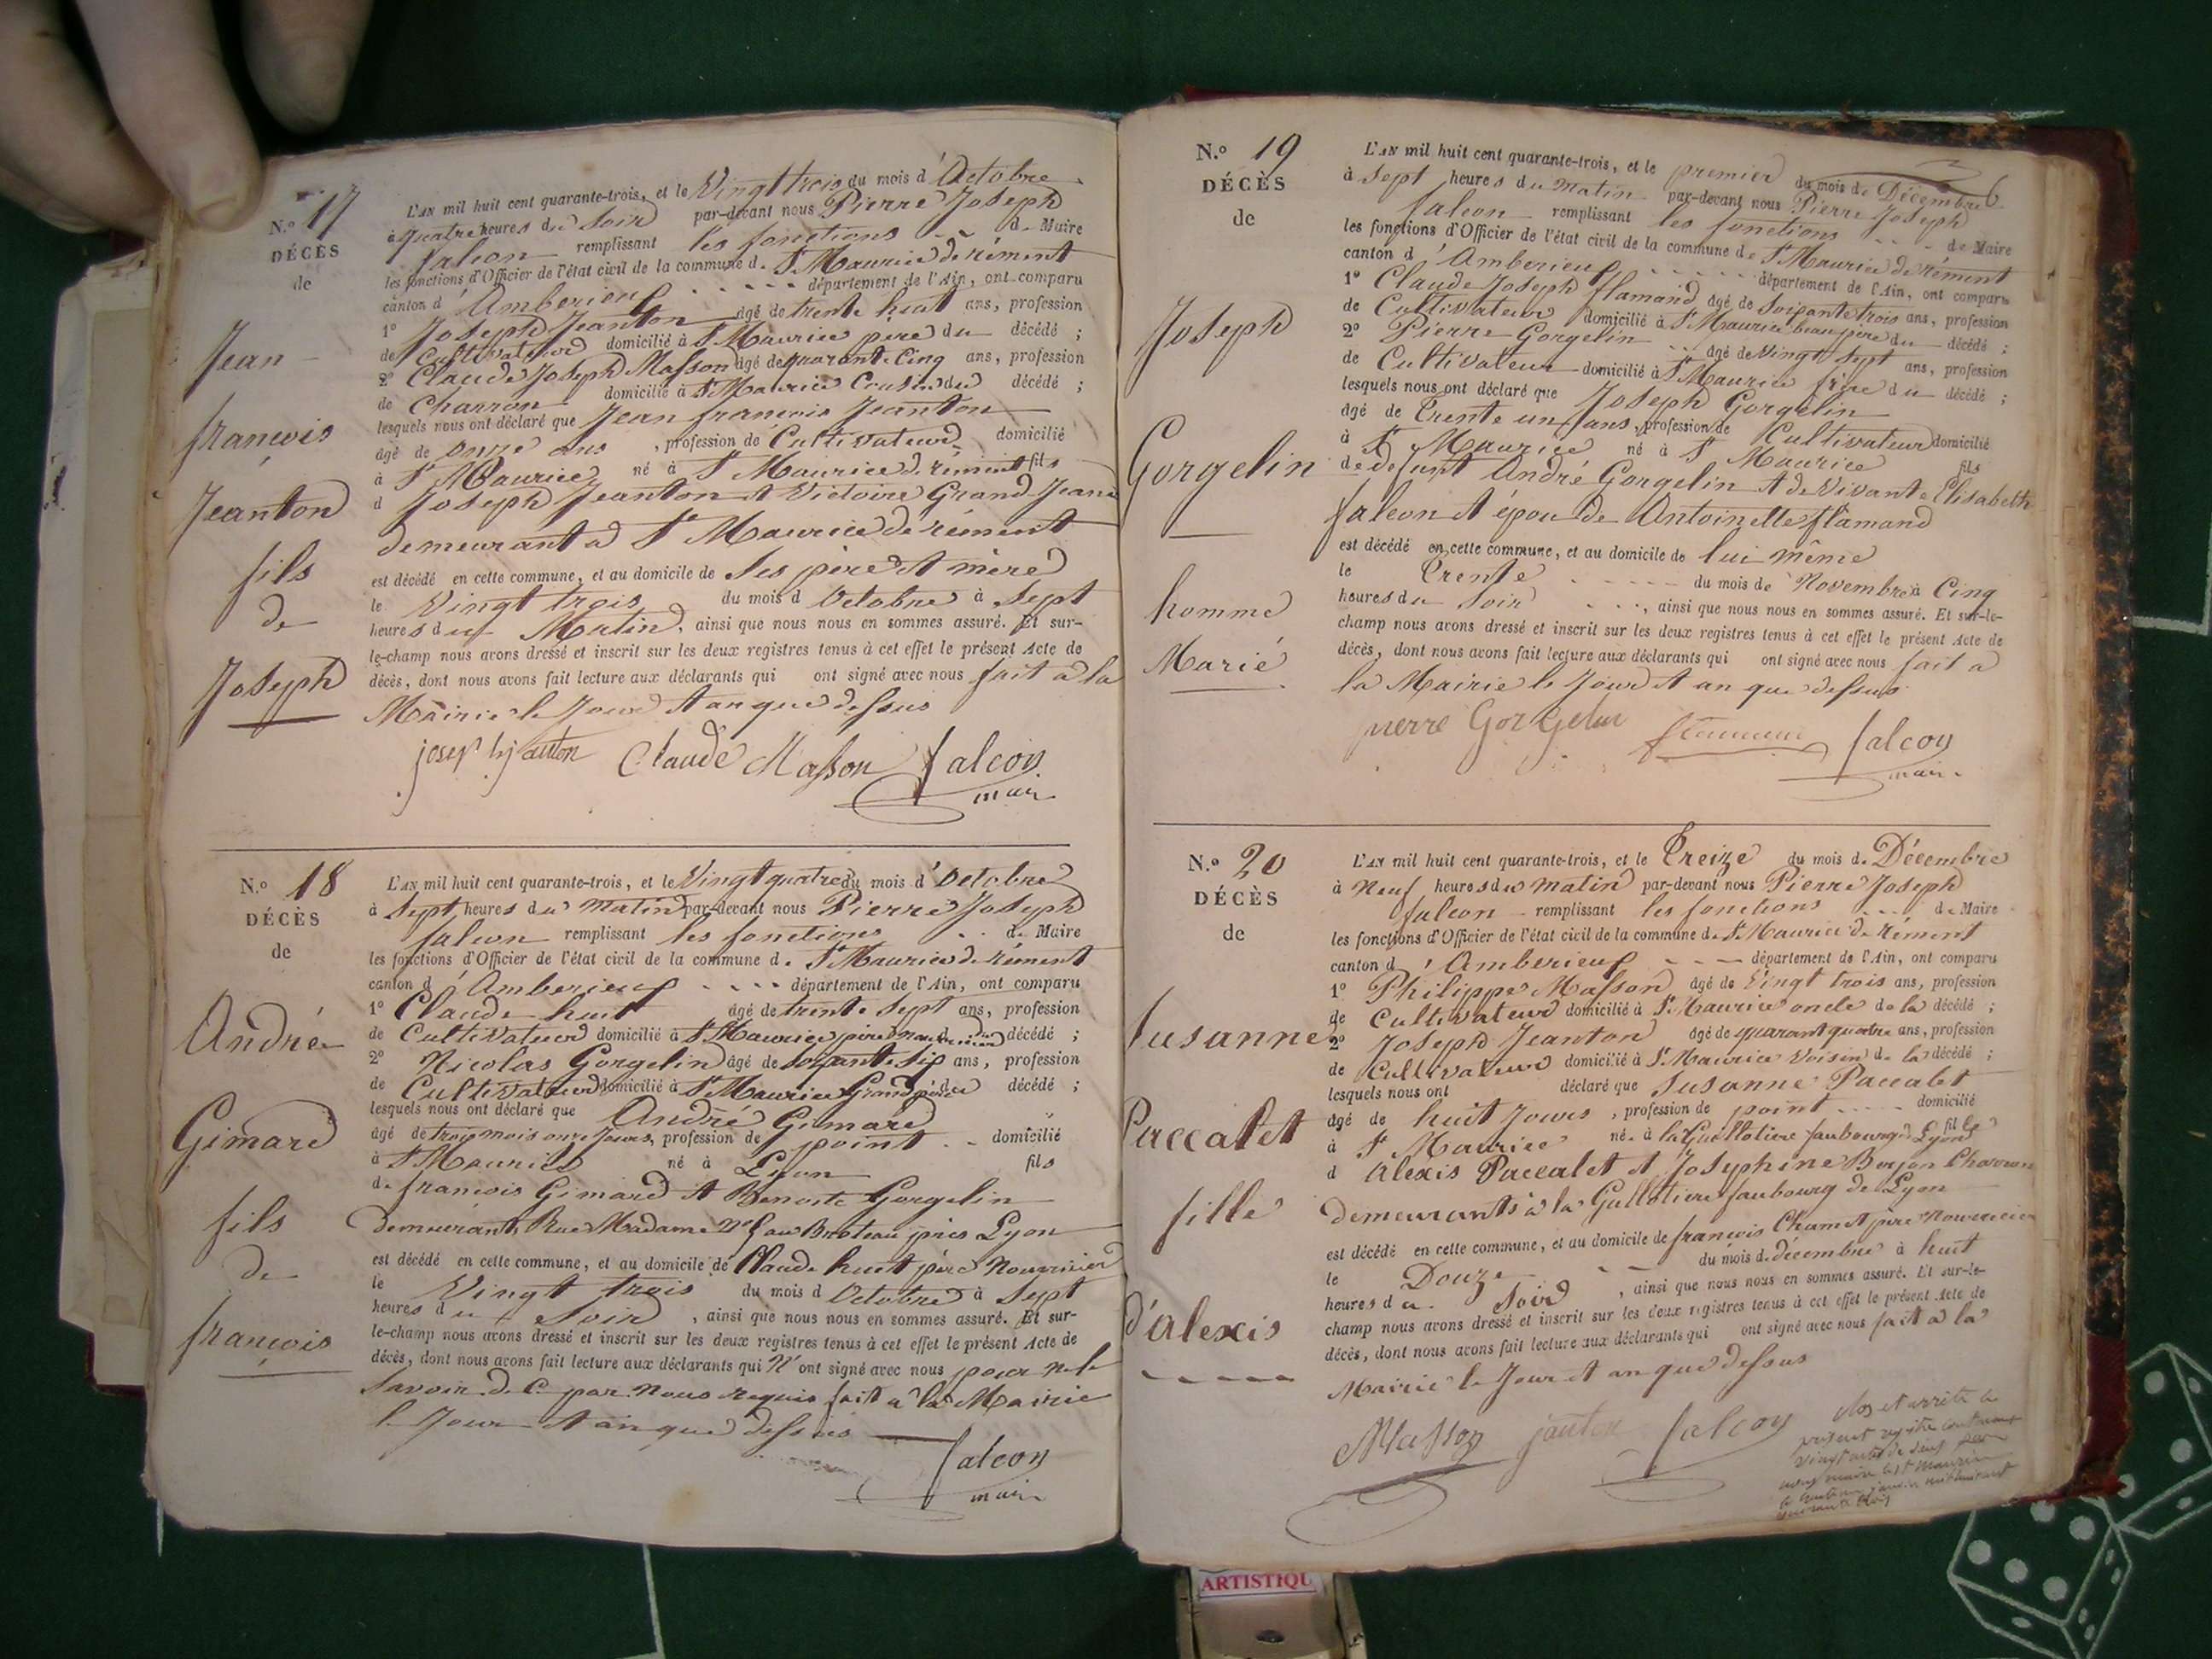 N.o 17
DÉCÈS
de
Jean
françois
Jeanton
fils
de
Joseph
L'AN mil huit cent quarante-trois, et le Vingt trois du mois d'Octobre
à quatre heures du Soir par-devant nous Pierre Joseph
falcon remplissant les fonctions d. Maire
les fonctions d'Officier de l'état civil de la commune d. St Maurice de rément
canton d'Amberieux département de l'Ain, ont comparu
1o Joseph Jeanton âgé de trente huit ans, profession
de Cultivateur domicilié à St Maurice père du décédé ;
2o Claude Joseph Masson âgé de quarante Cinq ans, profession
de Charron domicilié à St Maurice Cousin du décédé ;
lesquels nous ont déclaré que Jean francois Jeanton
âgé de onze ans , profession de Cultivateur domicilié
à St Maurice né à St Maurice de rément fils
d Joseph Jeanton et Victoire Grand Jean
demeurant a St Maurice de rément
est décédé en cette commune, et au domicile de Ses père et mère
le Vingt trois du mois d Octobre à Sept
heures du Matin , ainsi que nous nous en sommes assuré. Et sur-
le-champ nous avons dressé et inscrit sur les deux registres tenus à cet effet le présent Acte de
décès, dont nous avons fait lecture aux déclarants qui ont signé avec nous fait a la
Mairie le Jour et an que dessus
Claude Masson falcon
maire
N.o 18
DÉCÈS
de
André
Gimard
fils
de
françois
L'AN mil huit cent quarante-trois, et le Vingt quatre du mois d'Octobre
à Sept heures du matin par-devant nous Pierre Joseph
falcon remplissant les fonctions d. Maire
les fonctions d'Officier de l'état civil de la commune d. St Maurice de rément
canton d'Amberieux département de l'Ain, ont comparu
1o Claude huit âgé de trente Sept ans, profession
de Cultivateur domicilié à St Maurice père nourricier du décédé ;
2o Nicolas Gorgelin âgé de soixante Six ans, profession
de Cultivateur domicilié à St Maurice Grand père du décédé ;
lesquels nous ont déclaré que André Gimard
âgé de trois mois onze Jours, profession de point domicilié
à St Maurice né à Lyon fils
de francois Gimard et Benoite Gorgelin
demeurant Rue Madame au Broteau près Lyon
est décédé en cette commune, et au domicile de Claude huit père Nourricier
le Vingt trois du mois d Octobre à Sept
heures du Soir , ainsi que nous nous en sommes assuré. Et sur-
le-champ nous avons dressé et inscrit sur les deux registres tenus à cet effet le présent Acte de
décès, dont nous avons fait lecture aux déclarants qui N'ont signé avec nous pour ne le
Savoir de Ce par Nous requis fait a la Mairie
le Jour et an que dessus
falcon
maire
N.o 19
DÉCÈS
de
Joseph
Gorgelin
homme
Marié
L'AN mil huit cent quarante-trois, et le premier du mois de Décembre
à Sept heures du matin par-devant nous Pierre Joseph
falcon remplissant les fonctions de Maire
les fonctions d'Officier de l'état civil de la commune de St Maurice de rément
canton d'Amberieux département de l'Ain, ont comparu
1o Claude Joseph flamand âgé de Soixante trois ans, profession
de Cultivateur domicilié à St Maurice beau père du décédé ;
2o Pierre Gorgelin âgé de Vingt Sept ans, profession
de Cultivateur domicilié à St Maurice frère du décédé ;
lesquels nous ont déclaré que Joseph Gorgelin
âgé de Trente un ans, profession de Cultivateur domicilié
à St Maurice né à St Maurice fils
de defunt André Gorgelin et de Vivante Elisabeth
falcon et époux de Antoinette flamand
est décédé en cette commune, et au domicile de lui même
le Trente du mois de Novembre à Cinq
heures du Soir , ainsi que nous nous en sommes assuré. Et sur-le-
champ nous avons dressé et inscrit sur les deux registres tenus à cet effet le présent Acte de
décès, dont nous avons fait lecture aux déclarants qui ont signé avec nous fait a
la Mairie le Jour et an que dessus
pierre Gorgelin falcon
maire
N.o 20
DÉCÈS
de
Susanne
Paccalet
fille
d'alexis
L'AN mil huit cent quarante-trois, et le Treize du mois d. Décembre
à Neuf heures du matin par-devant nous Pierre Joseph
falcon remplissant les fonctions d. Maire
les fonctions d'Officier de l'état civil de la commune d. St Maurice de rément
canton d'Amberieux département de l'Ain, ont comparu
1o Philippe Masson âgé de Vingt trois ans, profession
de Cultivateur domicilié à St Maurice oncle de la décédé ;
2o Joseph Jeanton âgé de quarant quatre ans, profession
de Cultivateur domicilié à St Maurice Voisin de la décédé ;
lesquels nous ont déclaré que Susanne Paccalet
âgé de huit Jours , profession de point domicilié
à St Maurice né à la Guillotiere faubourg Lyon fille
d Alexis Paccalet et Josephine
demeurants à la Guillotiere faubourg de Lyon
est décédé en cette commune, et au domicile de francois Chamet père Nourricier
le Douze du mois d. décembre à huit
heures du Soir , ainsi que nous nous en sommes assuré. Et sur-le-
champ nous avons dressé et inscrit sur les deux registres tenus à cet effet le présent Acte de
décès, dont nous avons fait lecture aux déclarants qui ont signé avec nous fait a la
Mairie le Jour et an que dessus
Masson janton falcon
clos et arrêté le
présent registre contenant
vingt actes de
nous maire de St Maurice
ARTISTIQU